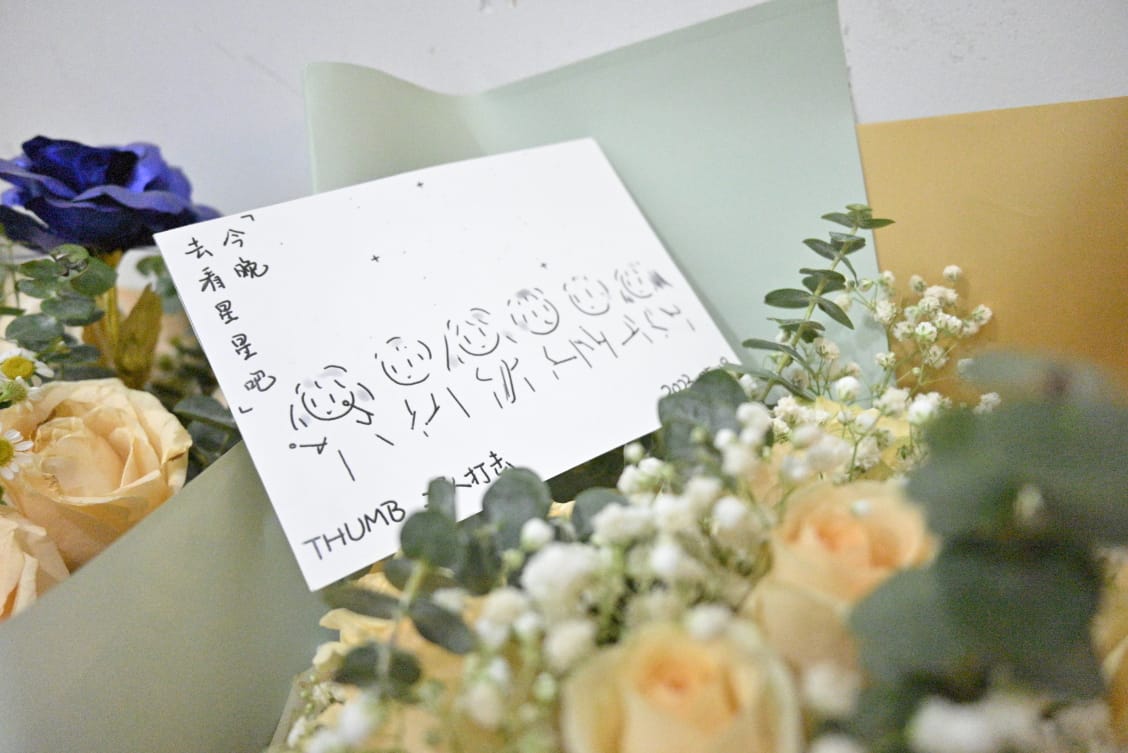 「今晚
去看星星吧」
THUMB
人打去
202